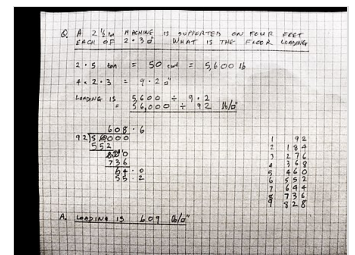 Q. A 2½ ton MACHINE IS SUPPORTED ON FOUR FEET
EACH OF 2·3□" WHAT IS THE FLOOR LOADING
2·5 ton = 50 cwt = 5,600 lb
4 × 2·3 = 9·20"
LOADING IS 5,600 ÷ 9·2
= 56,000 ÷ 92 lb/□"
608·6
92)56000
552
736
64·0
55·2
1 92
2 184
3 276
4 368
5 460
6 552
7 644
8 736
9 828
A. LOADING IS 609 lb/□"